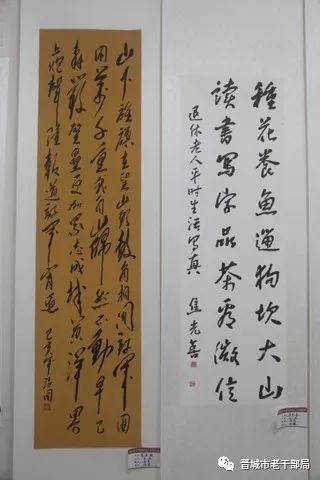 種花養魚遛狗坎大山
读書寫字品茶看微信
退休老人平时生活写真 焦光善
山下旌旗在望山头鼓角相闻敌军围
困萬千重我自巋然不動早已
森嚴壁壘更加众志成城黄洋界
上炮聲隆報道敌军宵遁 己亥年
晋城市老干部局